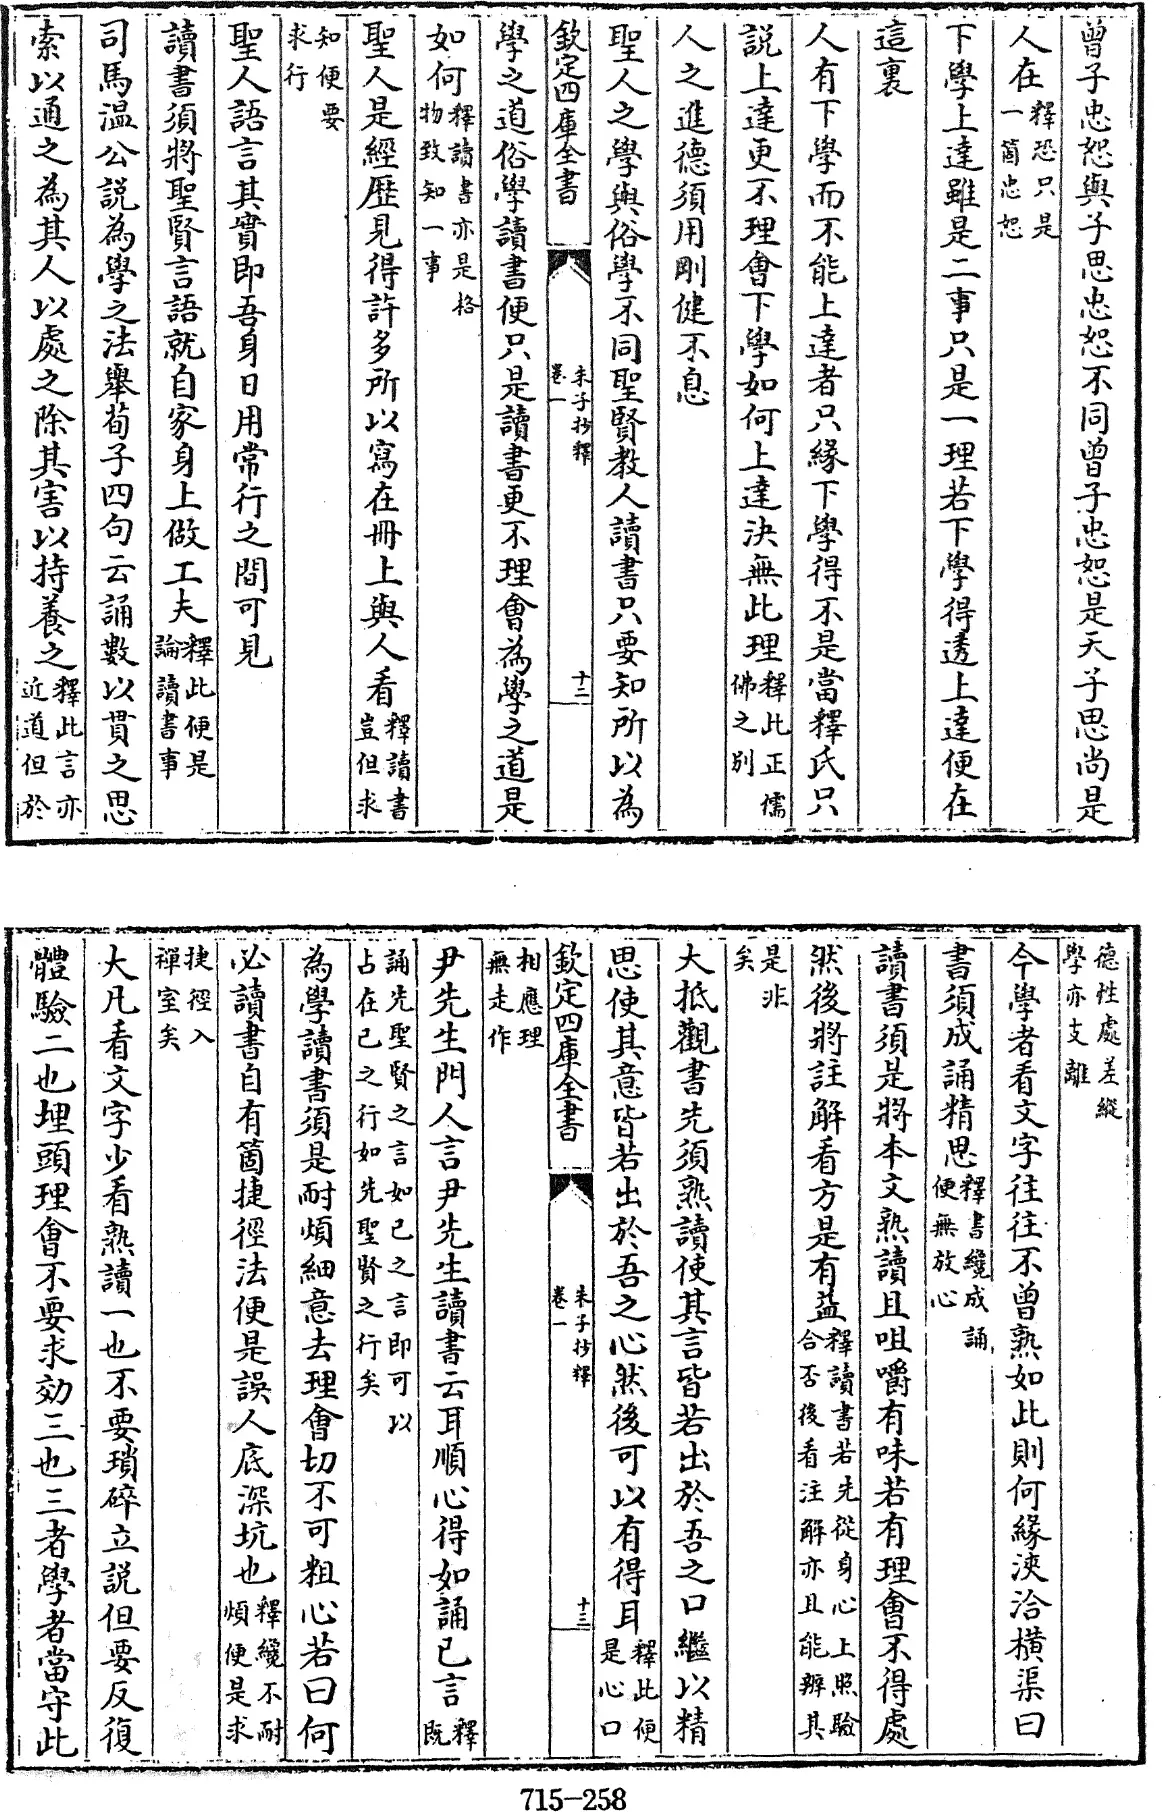 曾子忠恕與子思忠恕不同曾子忠恕是天子思尚是
人在釋恐只是一箇忠恕
下學上達雖是二事只是一理若下學得透上達便在
這裏
人有下學而不能上達者只緣下學得不是當釋氏只
說上達更不理會下學如何上達決無此理釋此正儒佛之別
人之進德須用剛健不息
聖人之學與俗學不同聖賢教人讀書只要知所以為
欽定四庫全書
朱子抄釋
卷一
十二
學之道俗學讀書便只是讀書更不理會為學之道是
如何釋讀書亦是格物致知一事
聖人是經歷見得許多所以寫在冊上與人看釋讀書豈但求
知便要求行
聖人語言其實即吾身日用常行之間可見
讀書須將聖賢言語就自家身上做工夫釋此便是論讀書事
司馬溫公說為學之法舉荀子四句云誦數以貫之思
索以通之為其人以處之除其害以持養之釋此言亦近道但於
德性處差縱學亦支離
今學者看文字往往不曾熟如此則何緣浹洽橫渠曰
書須成誦精思釋書纔成誦便無放心
讀書須是將本文熟讀且咀嚼有味若有理會不得處
然後將註解看方是有益釋讀書若先從身心上照驗合否後看注解亦且能辨其
是非矣
大抵觀書先須熟讀使其言皆若出於吾之口繼以精
思使其意皆若出於吾之心然後可以有得耳釋此便是心口
欽定四庫全書
朱子抄釋
卷一
十三
相應理無走作
尹先生門人言尹先生讀書云耳順心得如誦已言釋既
誦先聖賢之言如已之言即可以占在已之行如先聖賢之行矣
為學讀書須是耐煩細意去理會切不可粗心若曰何
必讀書自有箇捷徑法便是誤人底深坑也釋纔不耐煩便是求
捷徑入禪室矣
大凡看文字少看熟讀一也不要瑣碎立說但要反復
體驗二也埋頭理會不要求効三也三者學者當守此
715-258